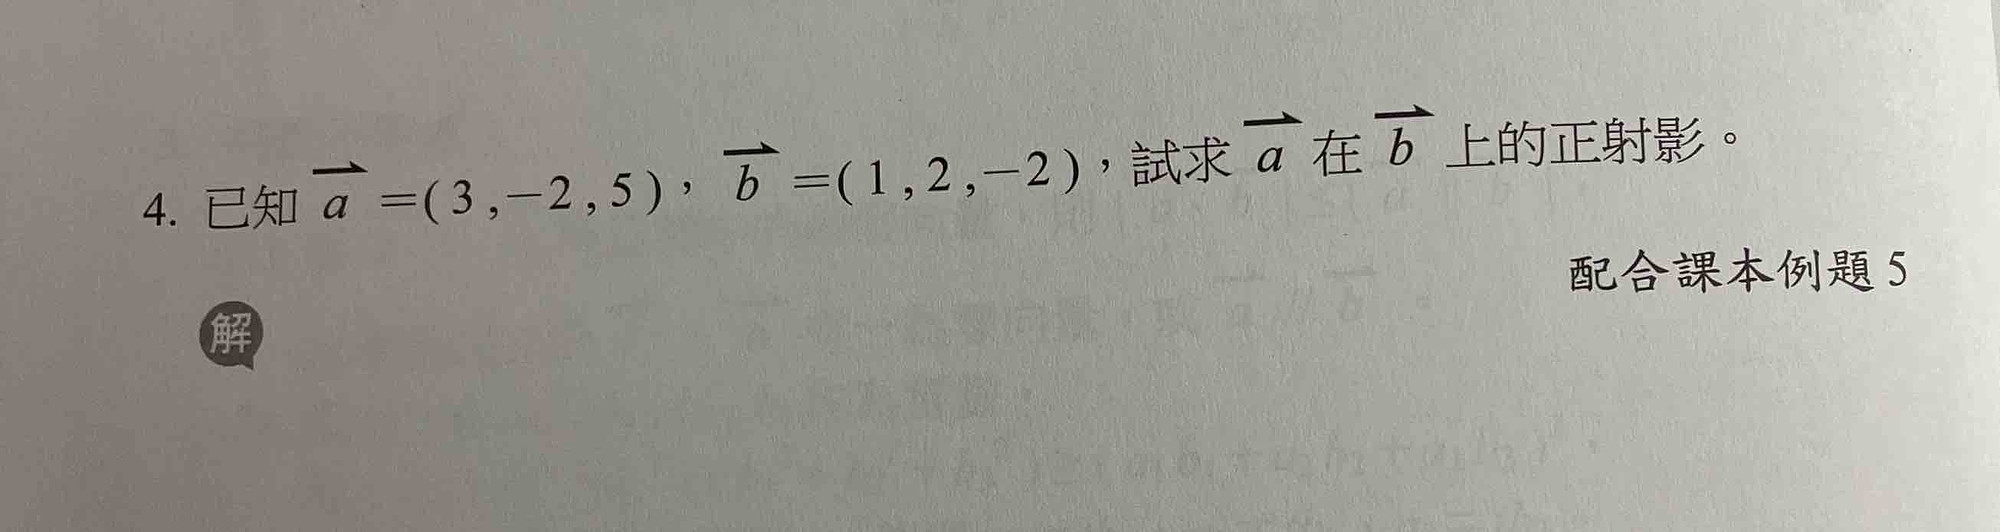 4. 已知 a =(3,−2,5)， b =(1,2,−2)，試求 a 在 b 上的正射影。
配合課本例題5
解